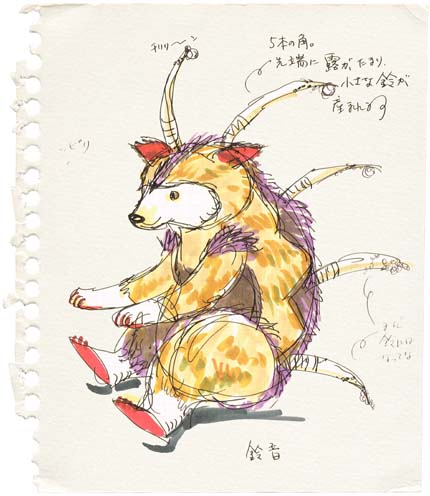 チリリ〜ン
5本の角。
先端に露がたまり、
小さな鈴が
産まれる
まだ
鈴には
なってな
鈴音